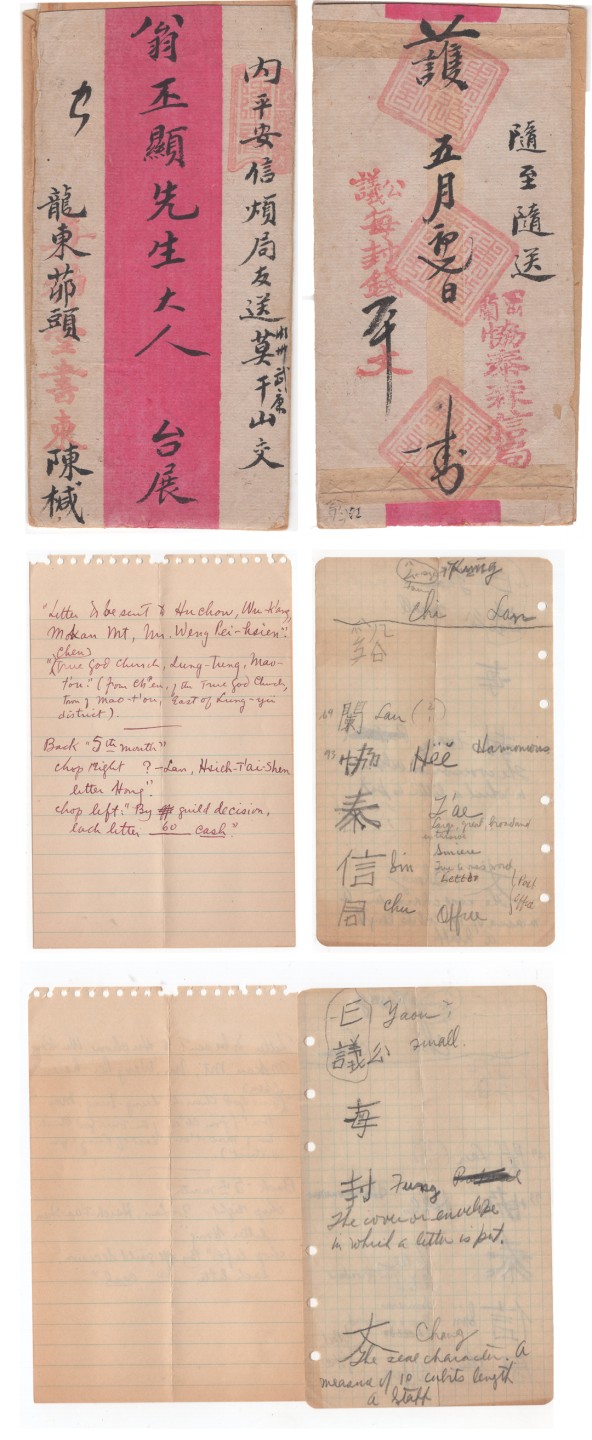 內平安信煩局友送湖州武康莫干山交
翁丕顯先生大人 台展
龍東茆頭 陳椷
護
五月初 日
隨至隨送
公議每封錢 文
蘭 協泰 信局
"Letter to be sent to Huchow, Wu-K'ang,
Mokan Mt, Mr. Weng Pei-hsien".
Chen)
"(True God Church, Lung-Tung, Mao-
t'ou." (From Ch'en, , the True God Church,
Town of Mao-t'ou, East of Lung-yü
district).
Back "5th month"
chop right ? - Lan, Hsieh-T'ai-Shen
letter Hong".
chop left: "By guild decision,
each letter 60 cash".
Kung
Chi Lan
谿
69 闌 Lan (?)
93 協 Hëë Harmonious
泰 T'ae
Large, great, broad and
信 Sin Sincere
Letter
(Post
局 Chu Office
Office
E Yaou?
議 公 small.
每
封 Fung
The cover or envelope
in which a letter is put.
文 Chang
The seal character. A
measure of 10 cubits length
a Staff